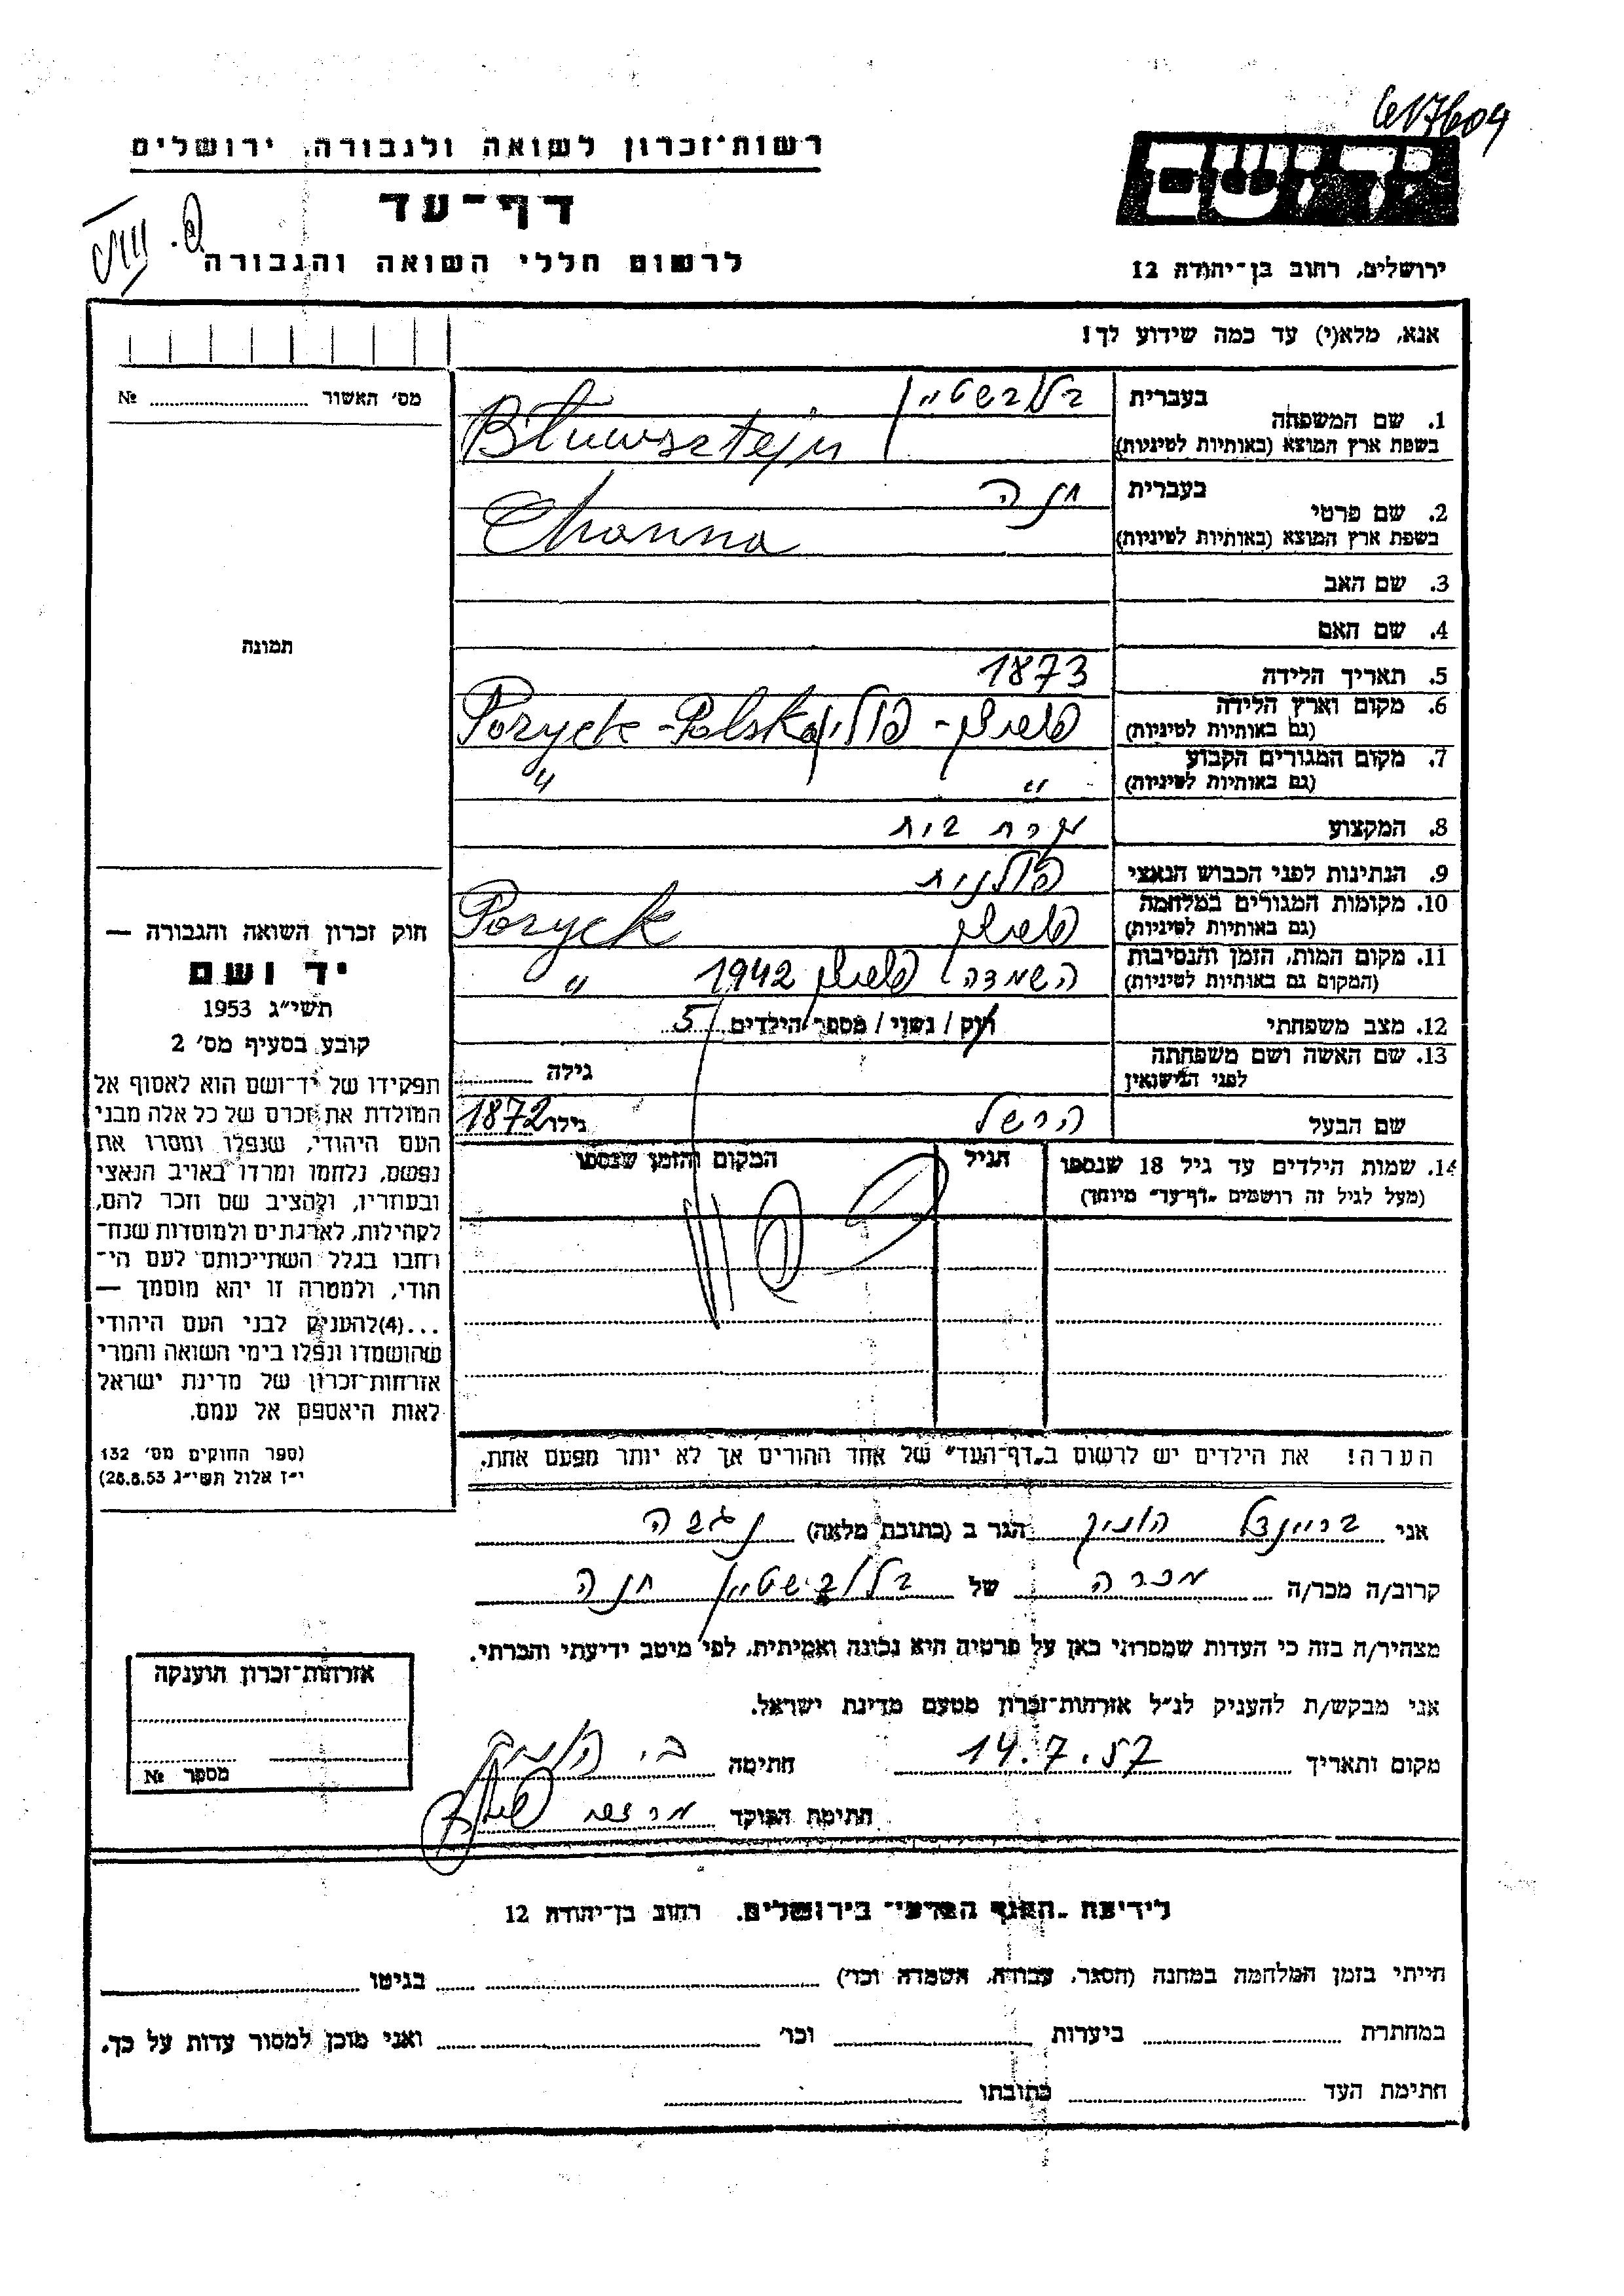 617609
רשות־זכרון לשואה ולגבורה, ירושלים
דף־עד
לרשום חללי השואה והגבורה
ידושם
ירושלים, רחוב בן־יהודה 12
אנא, מלא(י) עד כמה שידוע לך!
מס' האשור № 
1. שם המשפחה
בעברית בלובשטיין
בשפת ארץ המוצא (באותיות לטיניות) Bluwsztejn
2. שם פרטי
בעברית חנה
בשפת ארץ המוצא (באותיות לטיניות) Channa
3. שם האב
4. שם האם
תמונה
5. תאריך הלידה 1873
6. מקום וארץ הלידה
(גם באותיות לטיניות) פוריצק - פולין Poryck - Polska
7. מקום המגורים הקבוע
(גם באותיות לטיניות) " "
8. המקצוע עקרת בית
9. הנתינות לפני הכבוש הנאצי פולנית
10. מקומות המגורים במלחמה
(גם באותיות לטיניות) פוריצק Poryck
11. מקום המות, הזמן והנסיבות
(המקום גם באותיות לטיניות) השמדה פוריצק 1942 "
12. מצב משפחתי רוק / נשוי / מספר הילדים 5
13. שם האשה ושם משפחתה
לפני הנישואין גילה
שם הבעל הרשל גילו 1872
14. שמות הילדים עד גיל 18 שנספו הגיל המקום והזמן שנספו
(מעל לגיל זה רושמים "דף־עד" מיוחד)
חוק זכרון השואה והגבורה —
יד ושם
תשי"ג 1953
קובע בסעיף מס' 2
תפקידו של יד־ושם הוא לאסוף אל
המולדת את זכרם של כל אלה מבני
העם היהודי, שנפלו ומסרו את
נפשם, נלחמו ומרדו באויב הנאצי
ובעוזריו, ולהציב שם וזכר להם,
לקהילות, לארגונים ולמוסדות שנח־
רבו בגלל השתייכותם לעם הי־
הודי, ולמטרה זו יהא מוסמך —
...(4)להעניק לבני העם היהודי
שהושמדו ונפלו בימי השואה והמרי
אזרחות־זכרון של מדינת ישראל
לאות היאספם אל עמם.
(ספר החוקים מס' 132
י"ז אלול תשי"ג 28.8.53)
הערה! את הילדים יש לרשום ב"דף־העד" של אחד ההורים אך לא יותר מפעם אחת.
אני בריינדל הגר ב (כתובת מלאה) נגבה
קרוב/ה מכר/ה מכרה של בלובשטיין חנה
מצהיר/ה בזה כי העדות שמסרתי כאן על פרטיה היא נכונה ואמיתית, לפי מיטב ידיעתי והכרתי.
אני מבקש/ת להעניק לנ"ל אזרחות־זכרון מטעם מדינת ישראל.
מקום ותאריך 14.7.57 חתימה
חתימת הפוקד
אזרחות־זכרון הוענקה
מספר №
לידיעת "האגף המדעי" בירושלים, רחוב בן־יהודה 12
הייתי בזמן המלחמה במחנה (הסגר, עבודה, השמדה וכו') בגיטו
במחתרת ביערות וכו' ואני מוכן למסור עדות על כך.
חתימת העד כתובתו